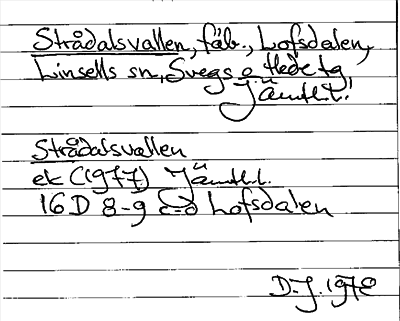 Strådalsvallen, fäb., Lofsdalen,
Linsells sn, Svegs o Hede tg
Jämtl.l.
Strådalsvallen
ek (1977) Jämtl.l.
16D 8-9 c-d Lofsdalen
D.J. 1978